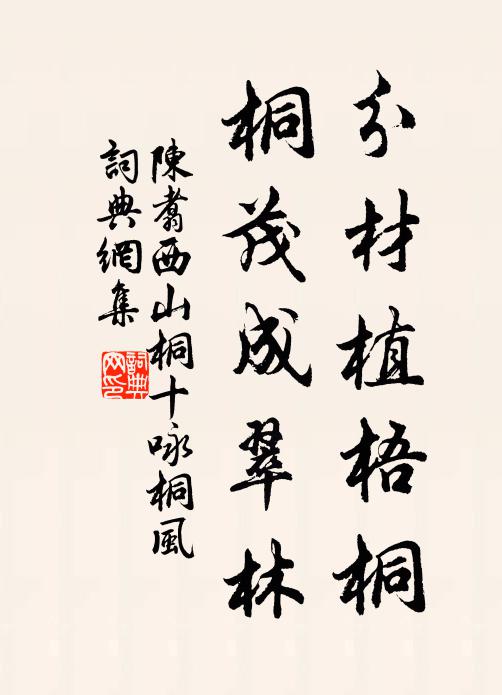 分材植梧桐
桐茂成翠林
陳翥西山桐十咏桐風
詞典網集
詞典
网印